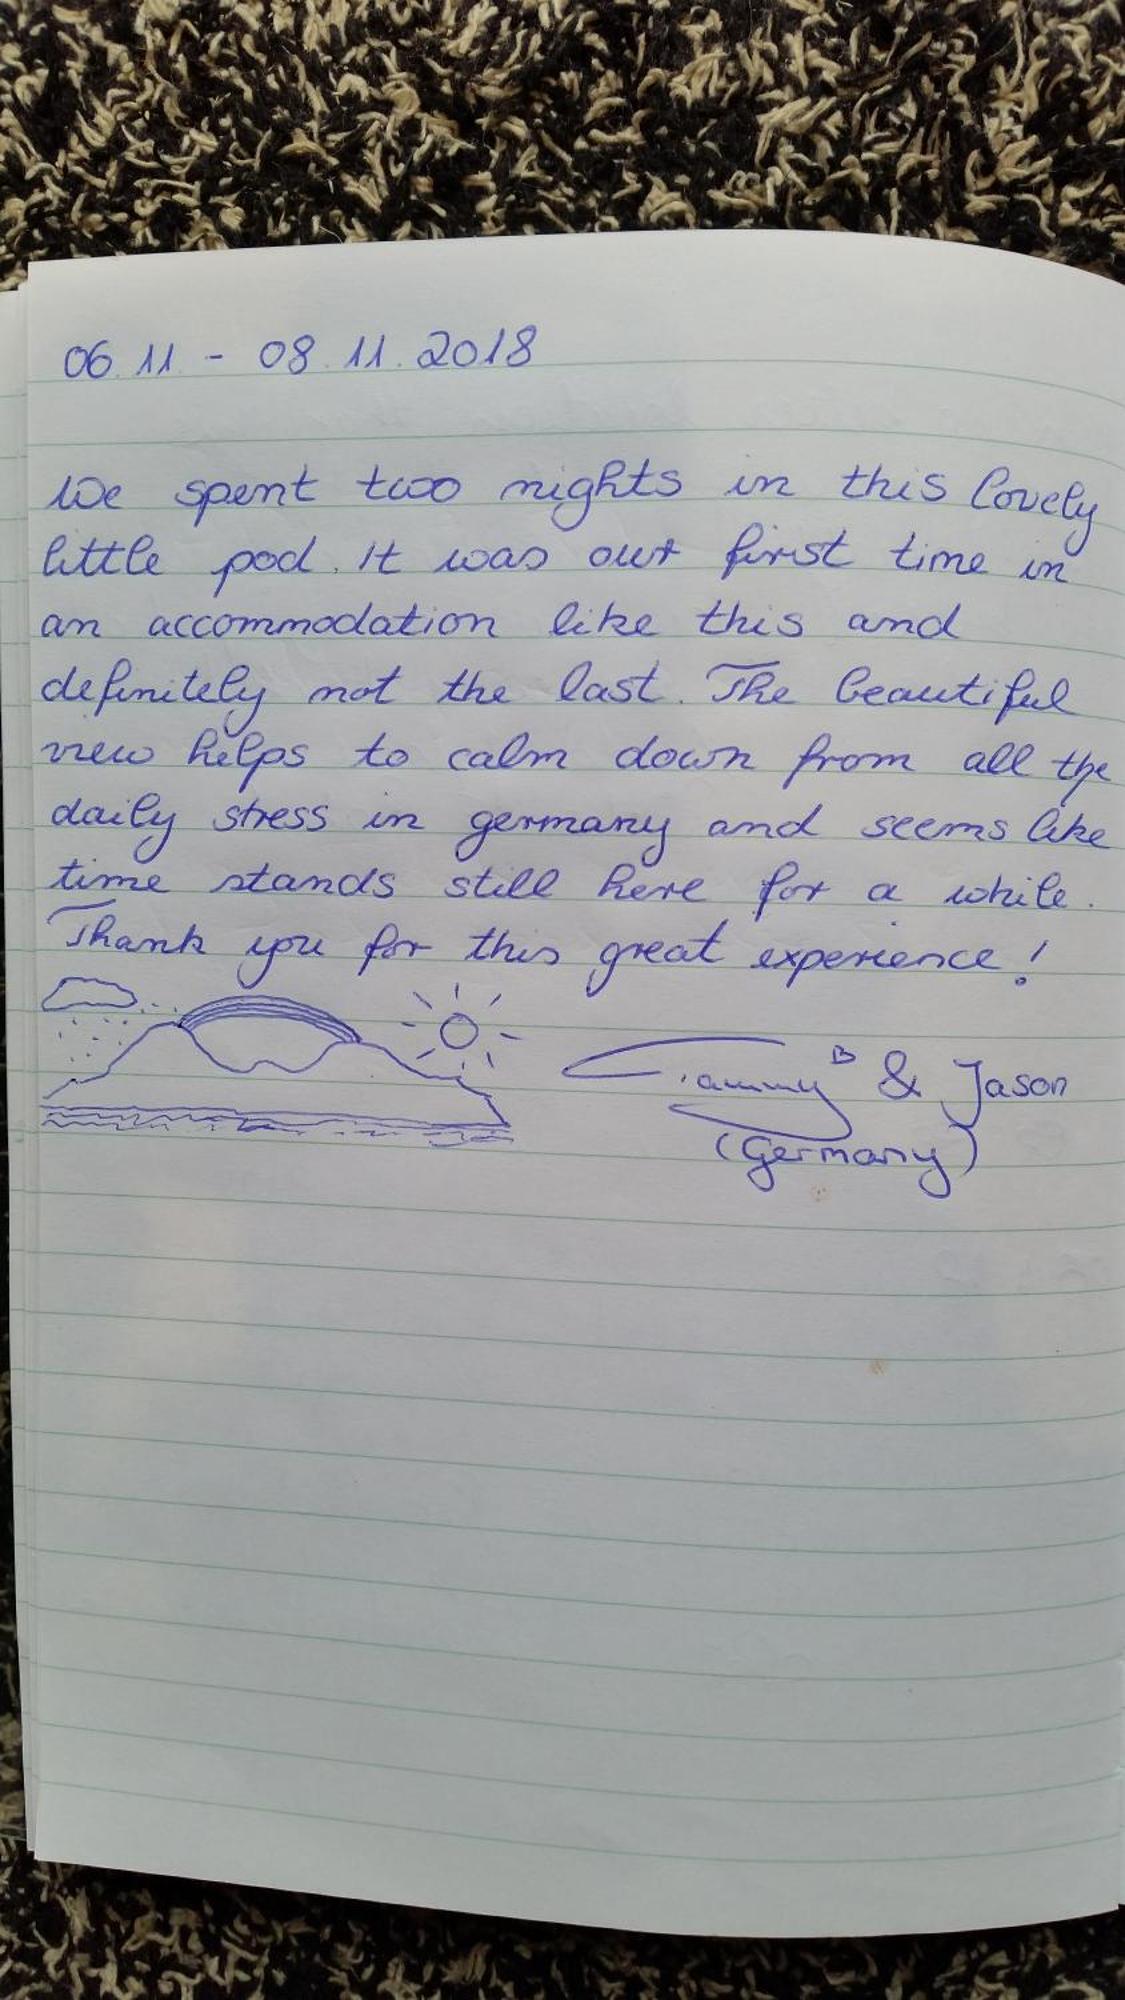 06.11 - 08.11.2018
We spent two nights in this lovely
little pod. It was our first time in
an accommodation like this and
definitely not the last. The beautiful
view helps to calm down from all the
daily stress in germany and seems like
time stands still here for a while.
Thank you for this great experience!
Tammy & Jason
(Germany)